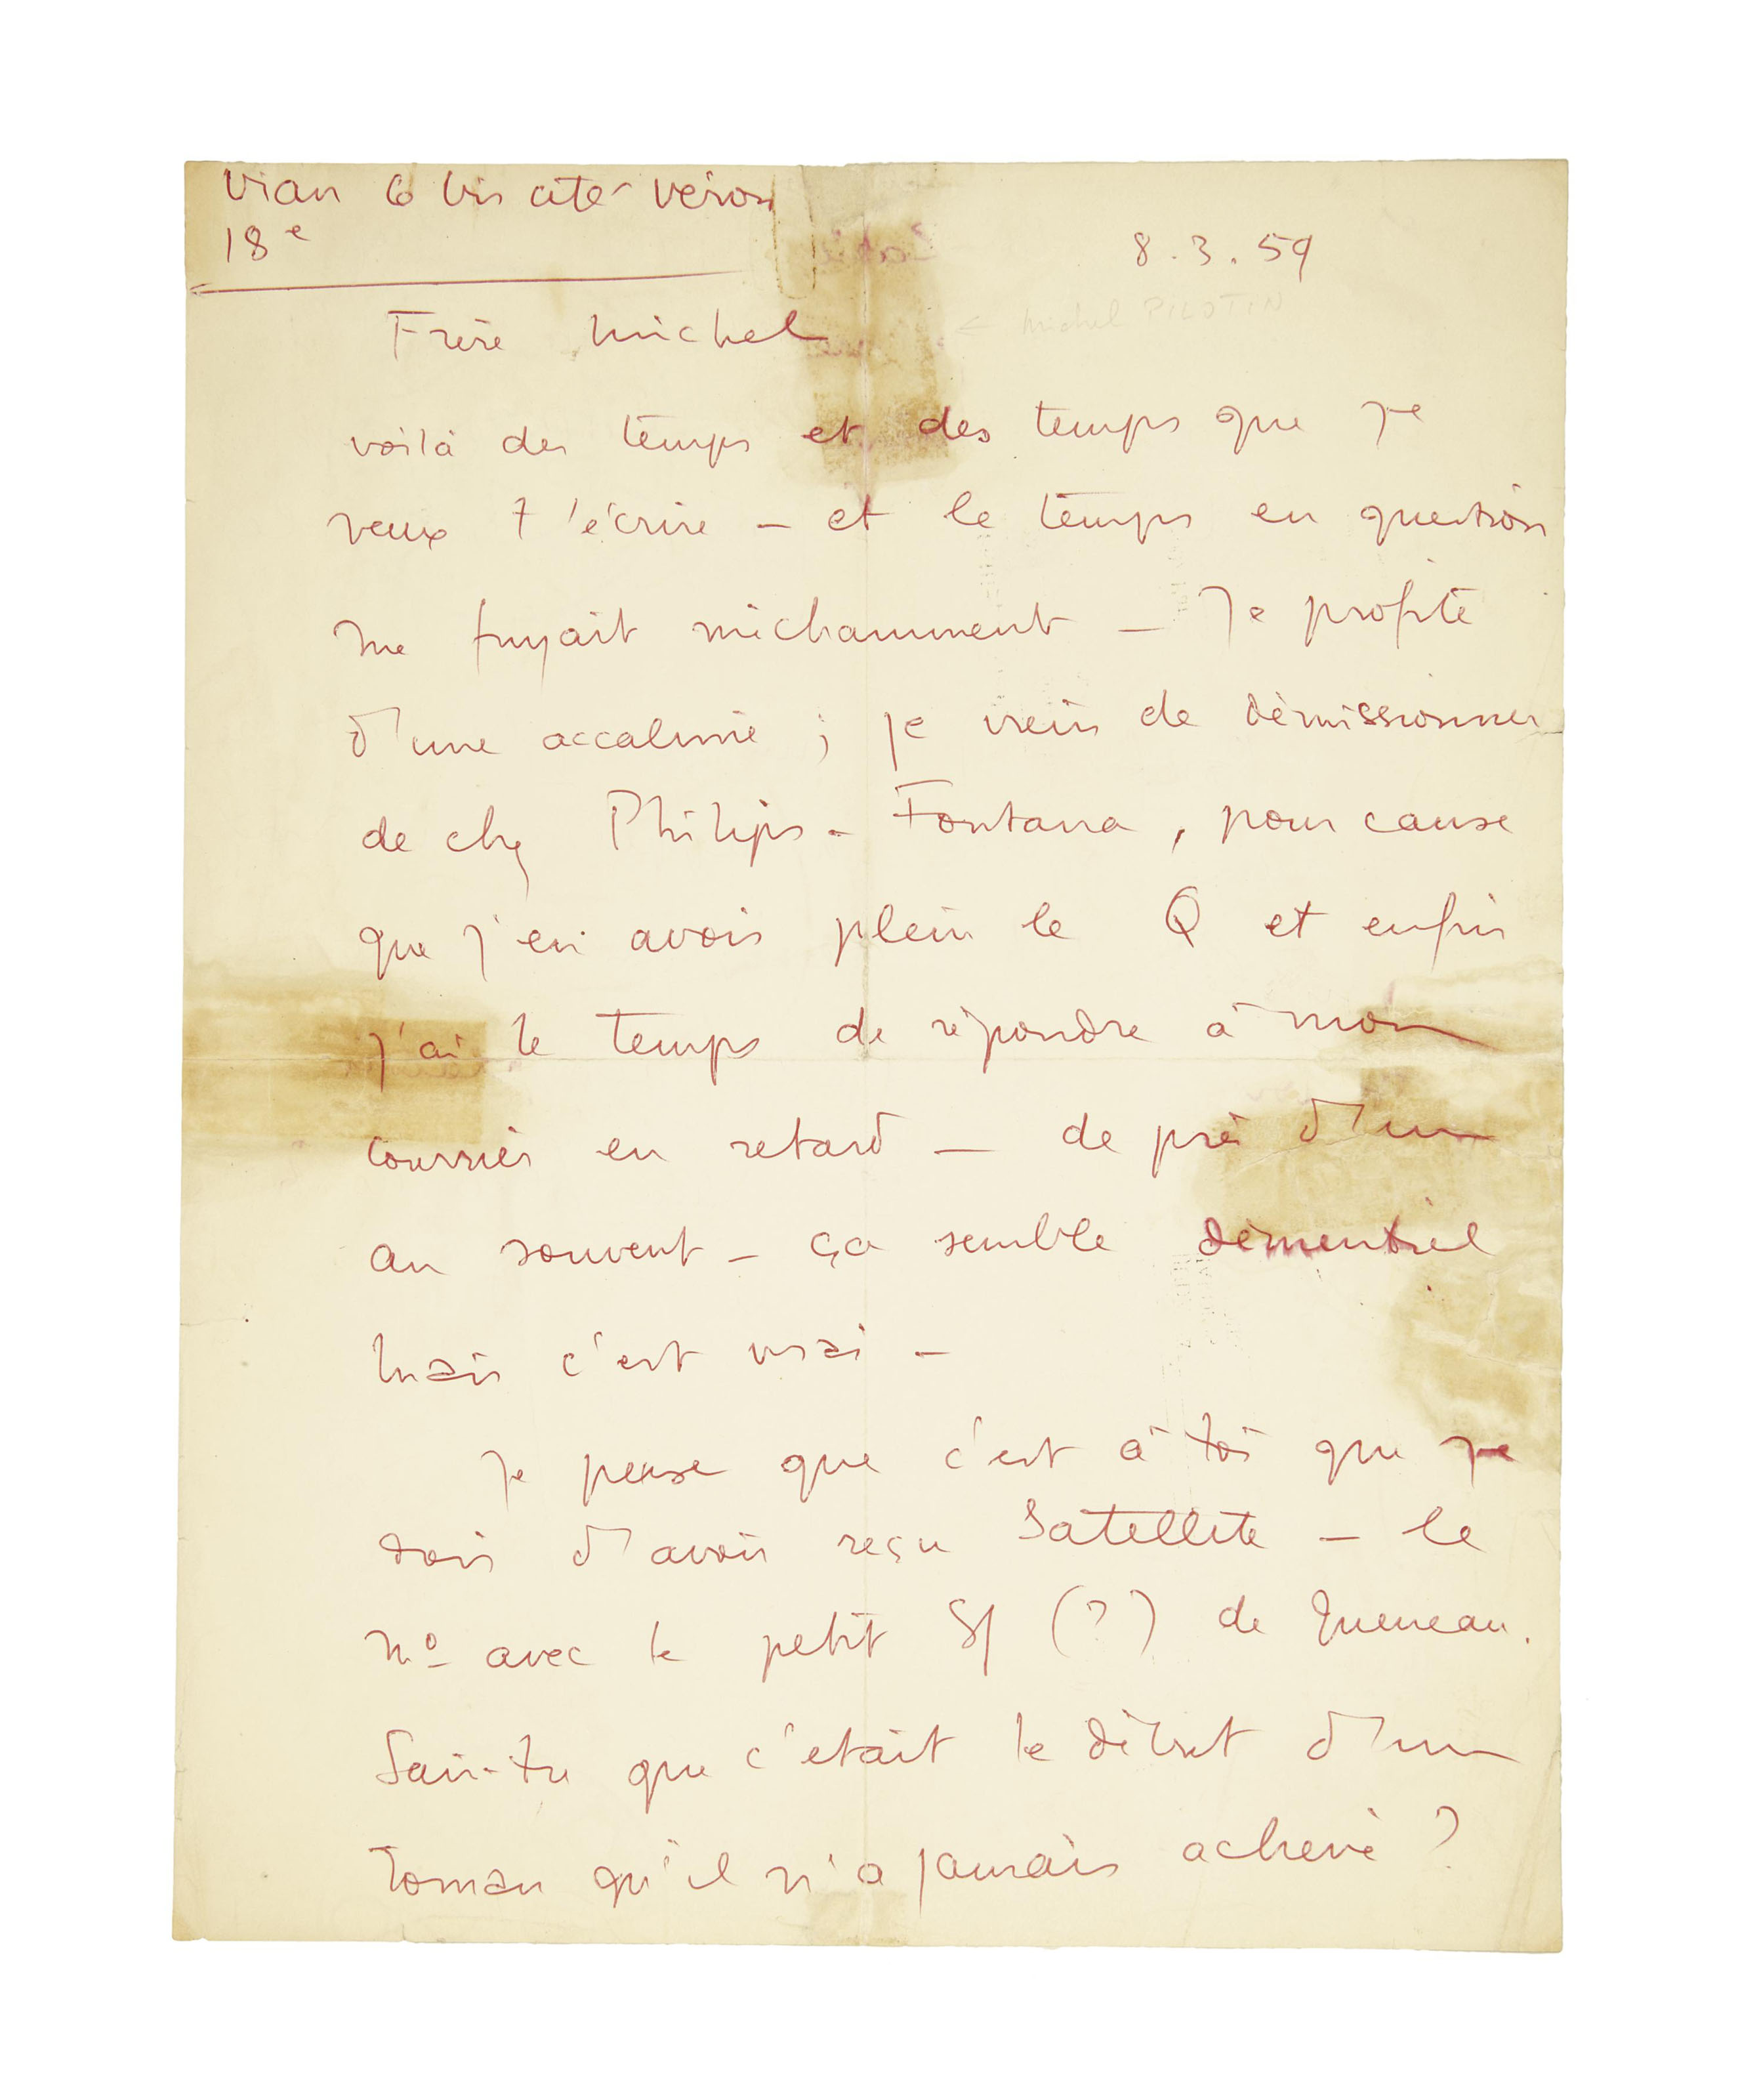 Vian 6 bis cité Véron
18e
8.3.59
Frère Michel
← Michel PILOTIN
voilà des temps et des temps que je
veux t'écrire – et le temps en question
me fuyait méchamment – Je profite
d'une accalmie ; je viens de démissionner
de chez Philips – Fontana, pour cause
que j'en avais plein le Q et enfin
j'ai le temps de répondre à mon
courrier en retard – de près d'un
an souvent – ça semble démentiel
mais c'est vrai –
Je pense que c'est à toi que je
dois d'avoir reçu Satellite – le
no avec le petit Sf (?) de Queneau.
Sais-tu que c'était le début d'un
roman qu'il n'a jamais achevé ?